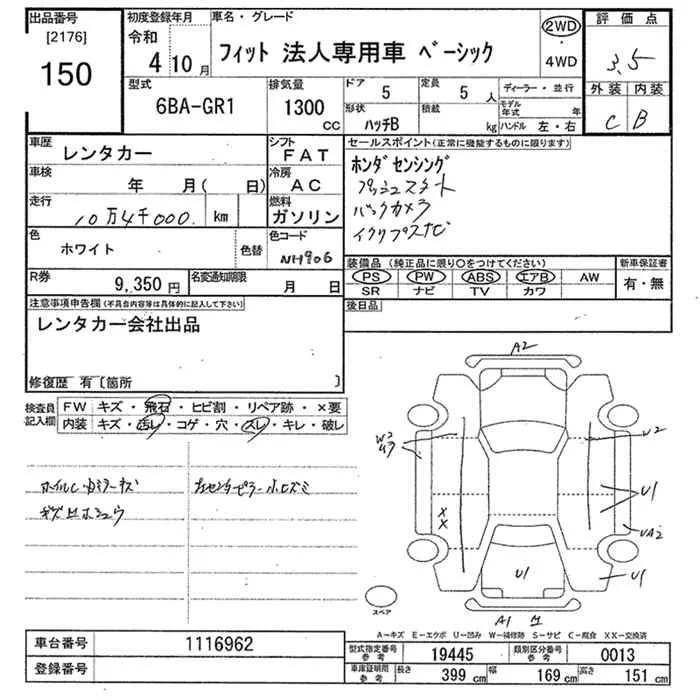 出品番号
[2176]
150
初度登録年月
令和
4年10月
車名・グレード
フィット 法人専用車 ベーシック
2WD
・
4WD
評価点
3.5
外装 内装
C B
型式
6BA-GR1
排気量
1300
CC
ドア
5
定員
5人
形状
ハッチB
積載
kg
ディーラー・並行
モデル年式 年
ハンドル 左・右
車歴
レンタカー
シフト
FAT
車検
年 月( 日)
冷房
AC
走行
10万4千000 km
燃料
ガソリン
色
ホワイト
色替
色コード
NH906
R券
9,350円
名変通知期限
月 日
セールスポイント(正常に機能するものに限ります)
ホンダセンシング
プッシュスタート
バックカメラ
装備品(純正品に限り○をつけてください)
PS PW ABS エアB AW
SR ナビ TV カワ
新車保証書
有・無
後日品
注意事項申告欄(不具合内容等は具体的に記入して下さい)
レンタカー会社出品
修復歴 有〔箇所 〕
検査員記入欄
FW キズ・飛石・ヒビ割・リペア跡・×要
内装 キズ・汚レ・コゲ・穴・スレ・キレ・破レ
A2
W2
U2
U1
UA2
U1
U1
X
X
A1
スペア
A−キズ E−エクボ U−凹み W−補修跡 S−サビ C−腐食 XX−交換済
車台番号
1116962
登録番号
型式指定番号
参考
19445
類別区分番号
参考
0013
車庫証明用
参考
長さ
399 cm
幅
169 cm
高さ
151 cm